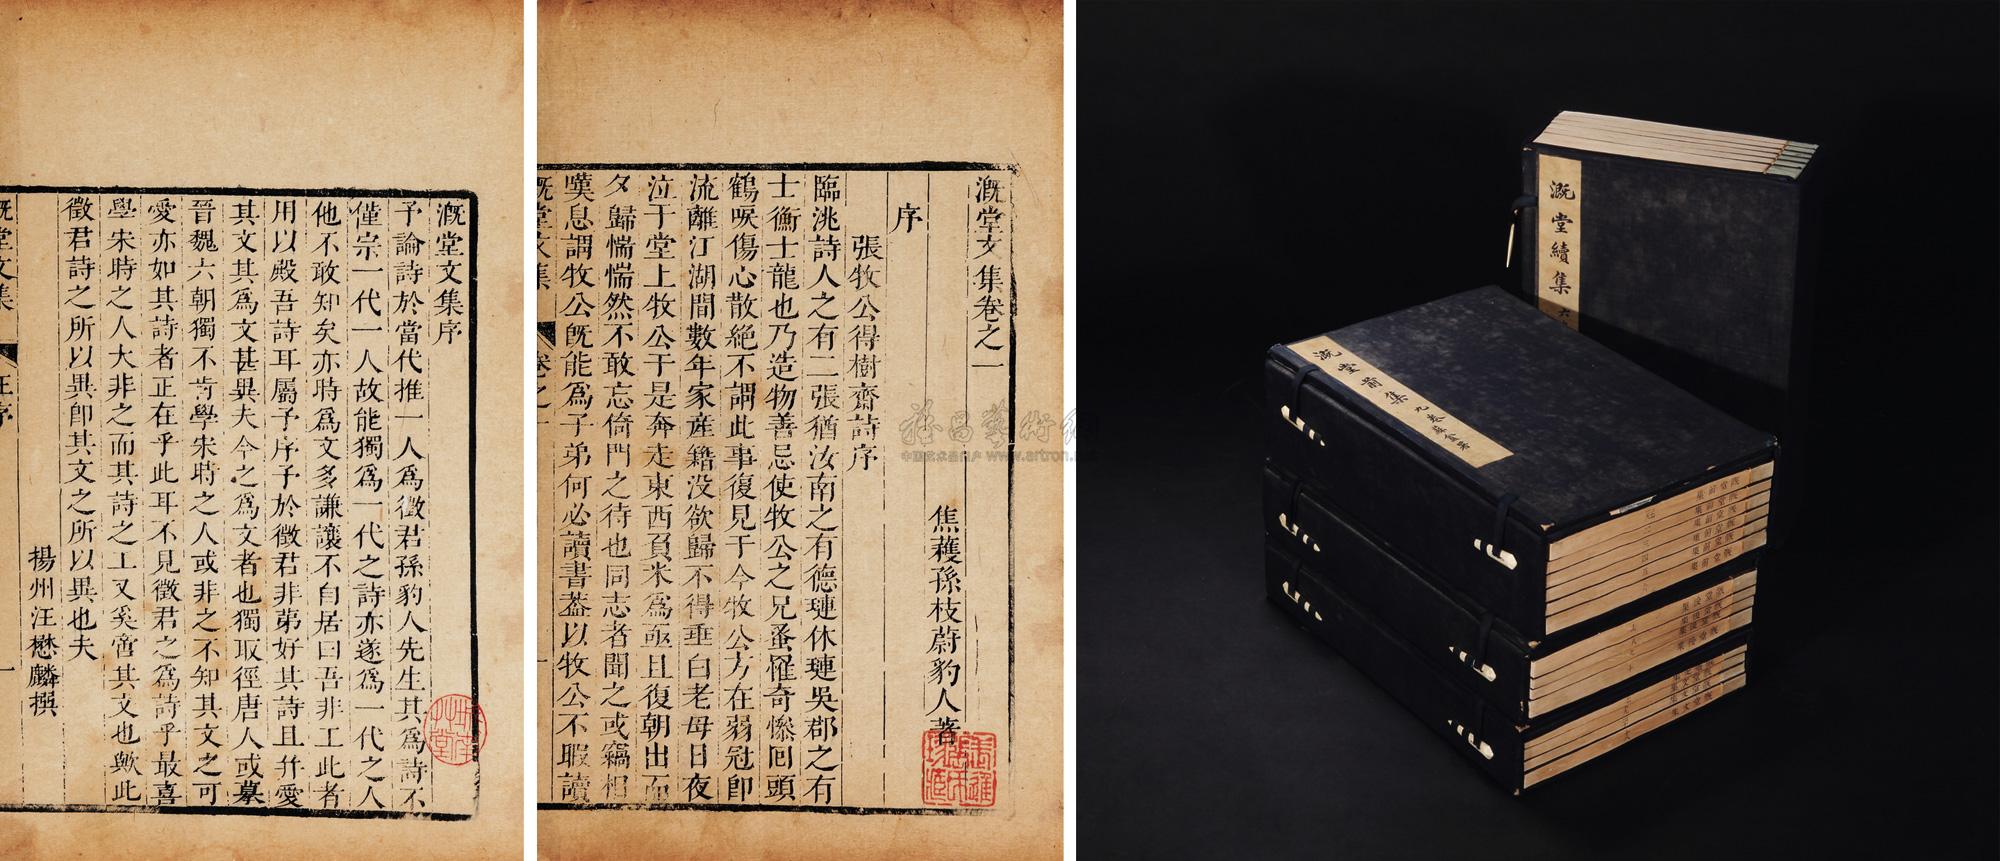 溉堂文集序
予論詩於當代推一人為徵君孫豹人先生其為詩不
僅宗一代一人故能獨為一代之詩亦遂為一代之人
他不敢知矣亦時為文多謙讓不自居曰吾非工此者
用以殿吾詩耳屬予序予於徵君非第好其詩且并愛
其文其為文甚異夫今之為文者也獨取徑唐人或摹
晉魏六朝獨不肯學宋時之人或非之不知其文之可
愛亦如其詩者正在乎此耳不見徵君之為詩乎最喜
學宋時之人大非之而其詩之工又奚啻其文也歟此
徵君詩之所以異即其文之所以異也夫
揚州汪懋麟撰
溉堂文集
汪序
一
溉堂文集卷之一
焦穫孫枝蔚豹人著
序
張牧公得樹齋詩序
臨洮詩人之有二張猶汝南之有德璉休璉吳郡之有
士衡士龍也乃造物善忌使牧公之兄蚤罹奇慘回頭
鶴唳傷心散絕不謂此事復見于今牧公方在弱冠即
流離江湖間數年家產籍没欲歸不得垂白老母日夜
泣于堂上牧公于是奔走東西負米為亟且復朝出而
夕歸惴惴然不敢忘倚門之待也同志者聞之或竊相
嘆息謂牧公旣能為子弟何必讀書葢以牧公不暇讀
溉堂文集
卷之一
一
溉堂續集 六
溉堂前集 九卷
雅昌藝術網
中国艺术品门户 www.artron.net